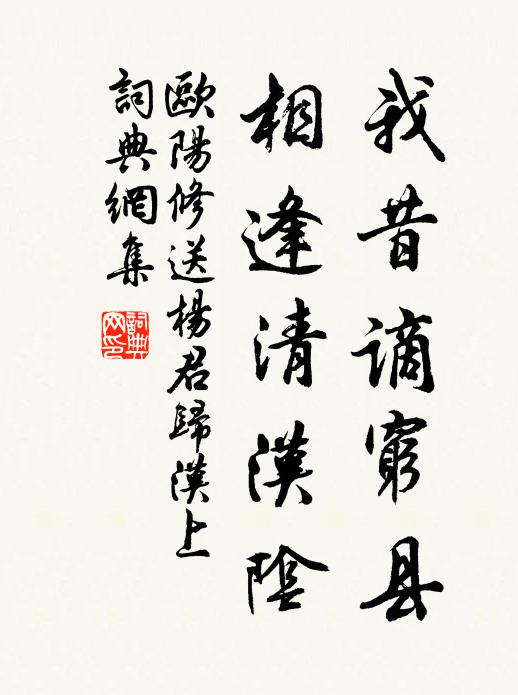 我昔謫窮县
相逢清漢陰
歐陽修送楊君歸漢上
詞典網集
詞典网印